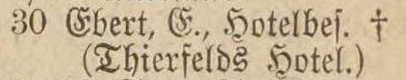 30 Ebert, E., Hotelbeſ. †
(Thierfelds Hotel.)